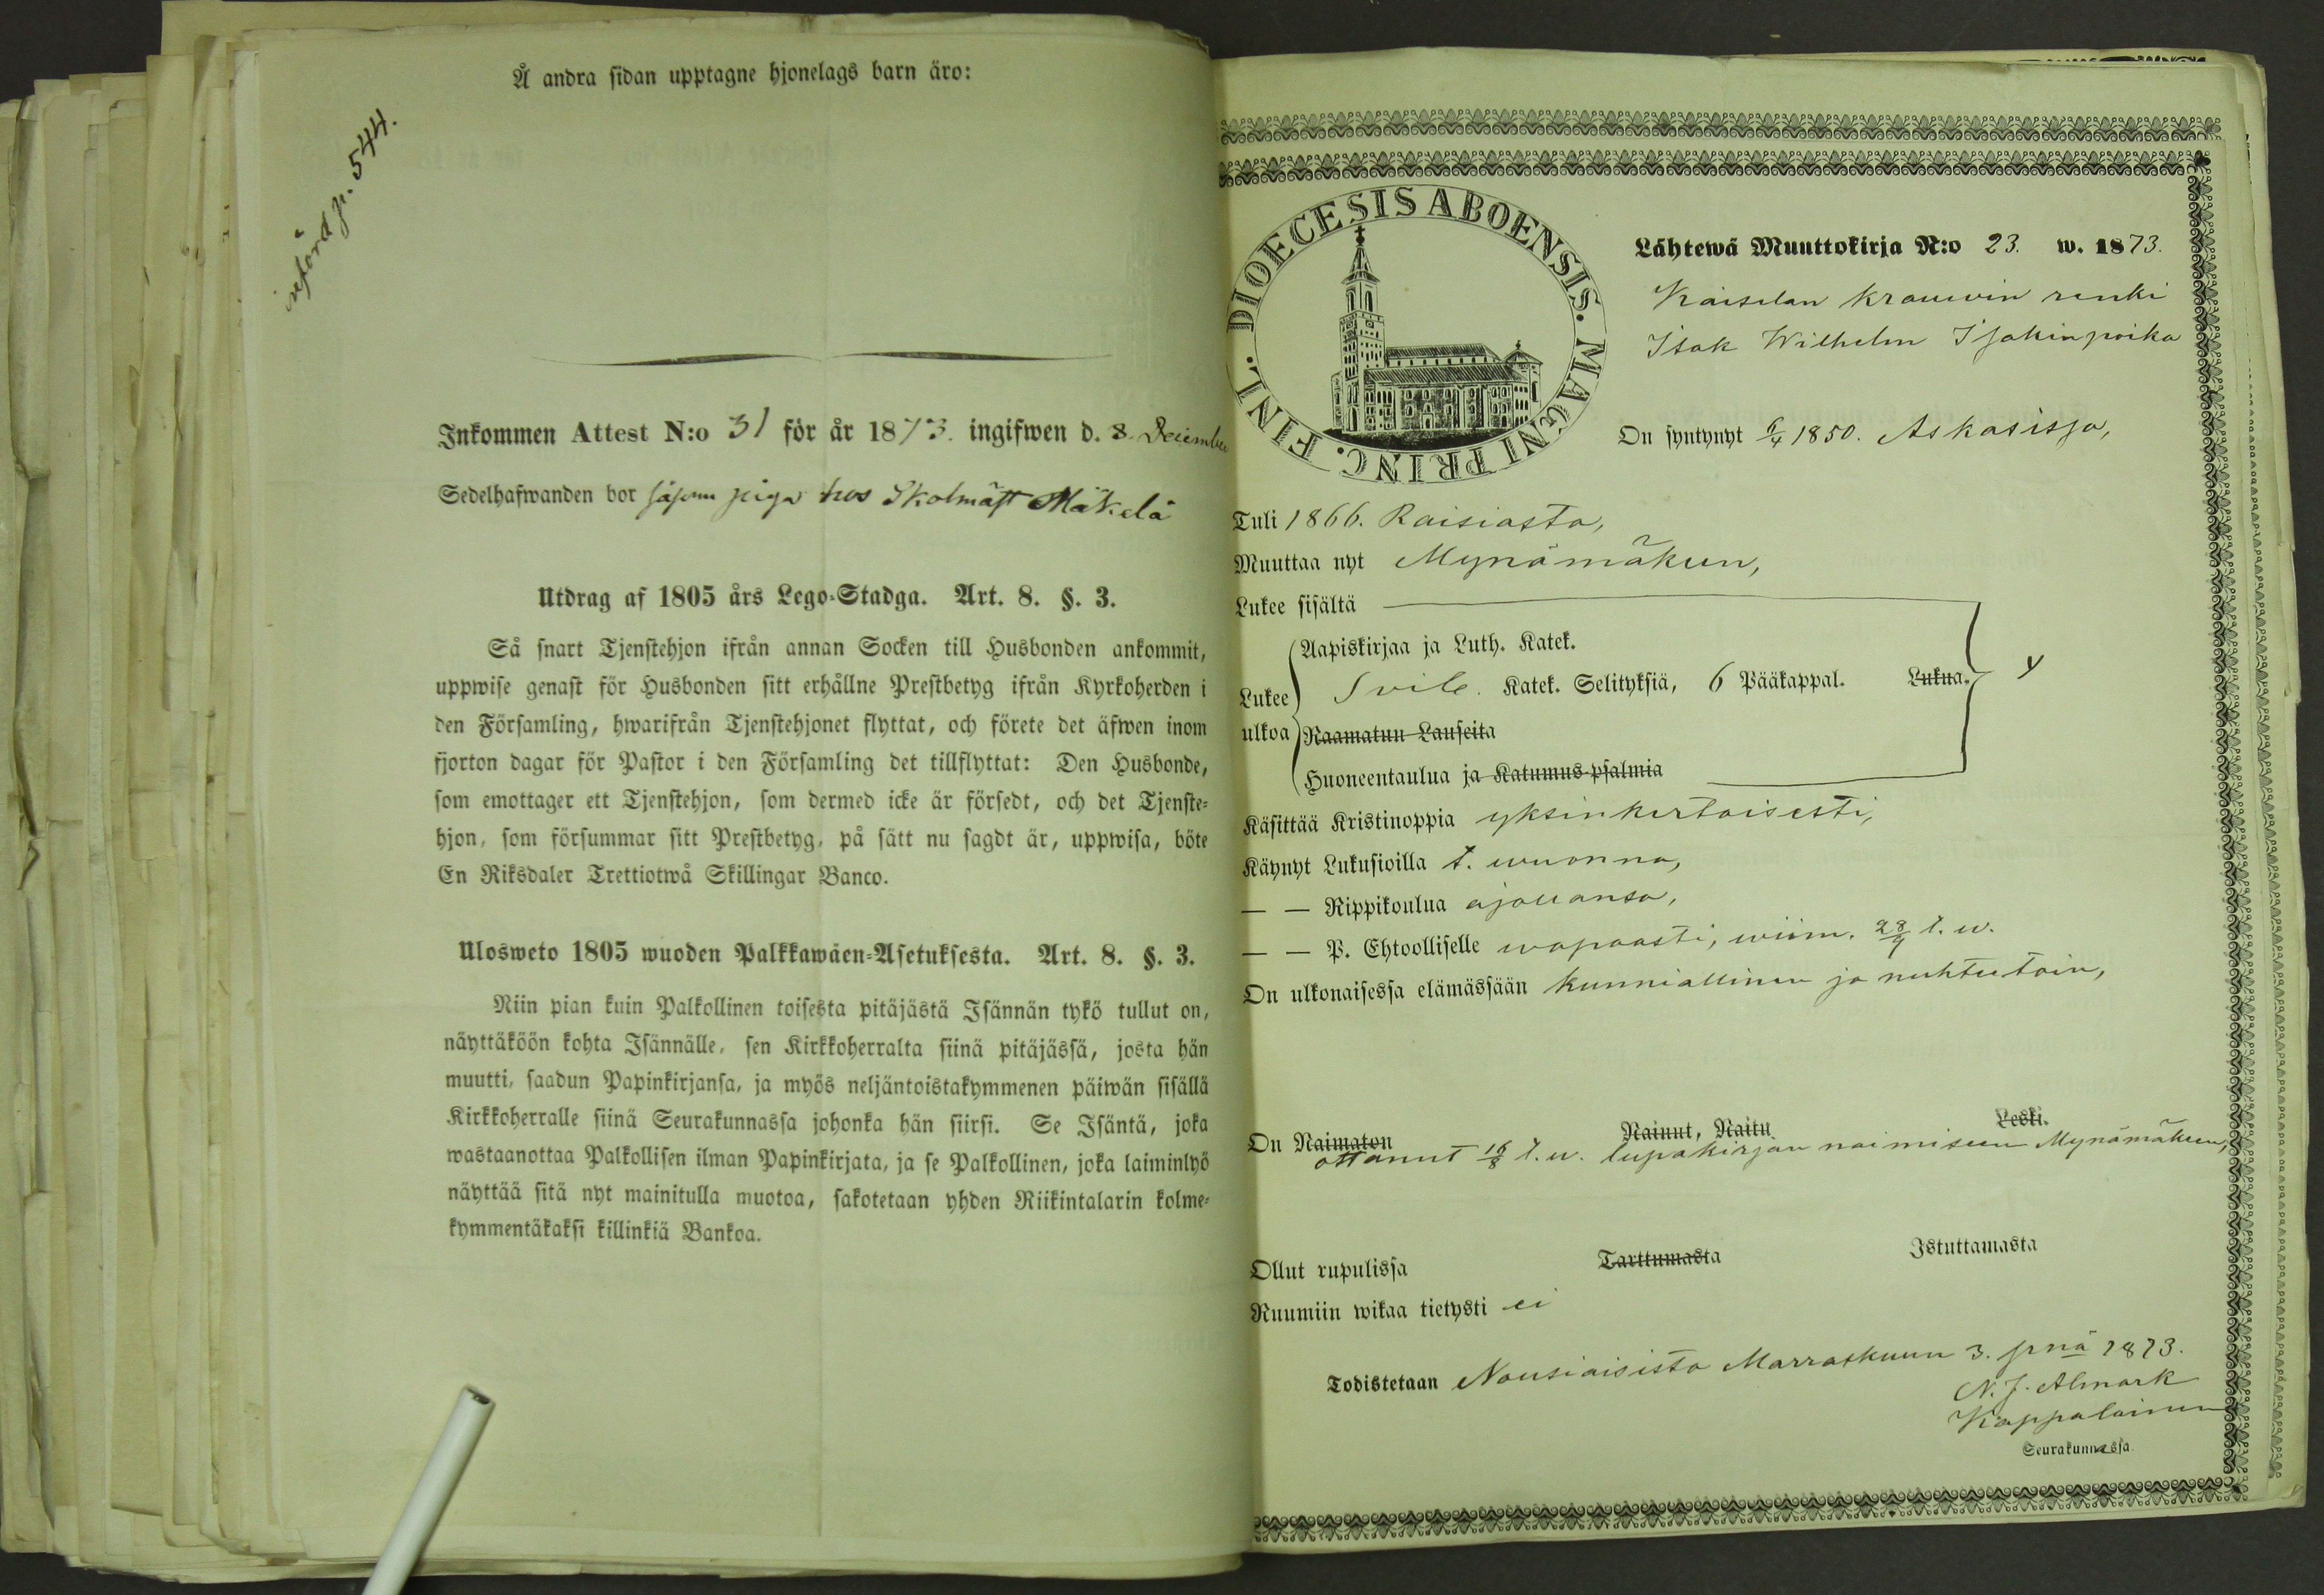 Å andra sidan upptagne hjonelags barn äro:
införd p. 544.
Inkommen Attest N:o 31 för år 1873. ingifwen d. 8 December
Sedelhafwanden bor såsom piga hos Skolmäst Mäkelä
Utdrag af 1805 års Lego-Stadga. Art. 8. §. 3.
Så snart Tjenstehjon ifrån annan Socken till Husbonden ankommit,
uppwise genast för Husbonden sitt erhållne Prestbetyg ifrån Kyrkoherden i
den Församling, hwarifrån Tjenstehjonet flyttat, och förete det äfwen inom
fjorton dagar för Pastor i den Församling det tillflyttat: Den Husbonde,
som emottager ett Tjenstehjon, som dermed icke är försedt, och det Tjenste-
hjon, som försummar sitt Prestbetyg, på sätt nu sagdt är, uppwisa, böte
En Riksdaler Trettiotwå Skillingar Banco.
Ulosweto 1805 wuoden Palkkawäen-Asetuksesta. Art. 8. §. 3.
Niin pian kuin Palkollinen toisesta pitäjästä Isännän tykö tullut on,
näyttäköön kohta Isännälle, sen Kirkkoherralta siinä pitäjässä, josta hän
muutti, saadun Papinkirjansa, ja myös neljäntoistakymmenen päiwän sisällä
Kirkkoherralle siinä Seurakunnassa johonka hän siirsi. Se Isäntä, joka
wastaanottaa Palkollisen ilman Papinkirjata, ja se Palkollinen, joka laiminlyö
näyttää sitä nyt mainitulla muotoa, sakotetaan yhden Riikintalarin kolme-
kymmentäkaksi killinkiä Bankoa.
DIOECESIS ABOENSIS. MAGNI PRINC. FINL.
Lähtewä Muuttokirja N:o 23. w. 1873.
Kaiselan krouwin renki
Isak Wilhelm Isakinpoika
On syntynyt 6/4 1850. Askasissa,
Tuli 1866. Raisiasta,
Muuttaa nyt Mynämäkeen,
Lukee sisältä
Aapiskirjaa ja Luth. Katek.
Lukee Svib. Katek. Selityksiä, 6 Pääkappal. Lukua.
ulkoa Raamatun Lauseita
Huoneentaulua ja Katumus-psalmia
Käsittää Kristinoppia yksinkertaisesti,
Käynyt Lukusioilla t. wuonna,
— — Rippikoulua ajallansa,
— — P. Ehtoolliselle wapaasti, wiim. 28/9 t. w.
On ulkonaisessa elämässään kunniallinen ja nuhteetoin,
On Naimaton Nainut, Naitu Leski.
ottanut 16/8 t. w. lupakirjan naimiseen Mynämäkeen,
Ollut rupulissa Tarttumasta Istuttamasta
Ruumiin wikaa tietysti ei
Todistetaan Nousiaisista Marraskuun 3. pnä 1873.
N. J. Almark
Kappalainen
Seurakunnassa.